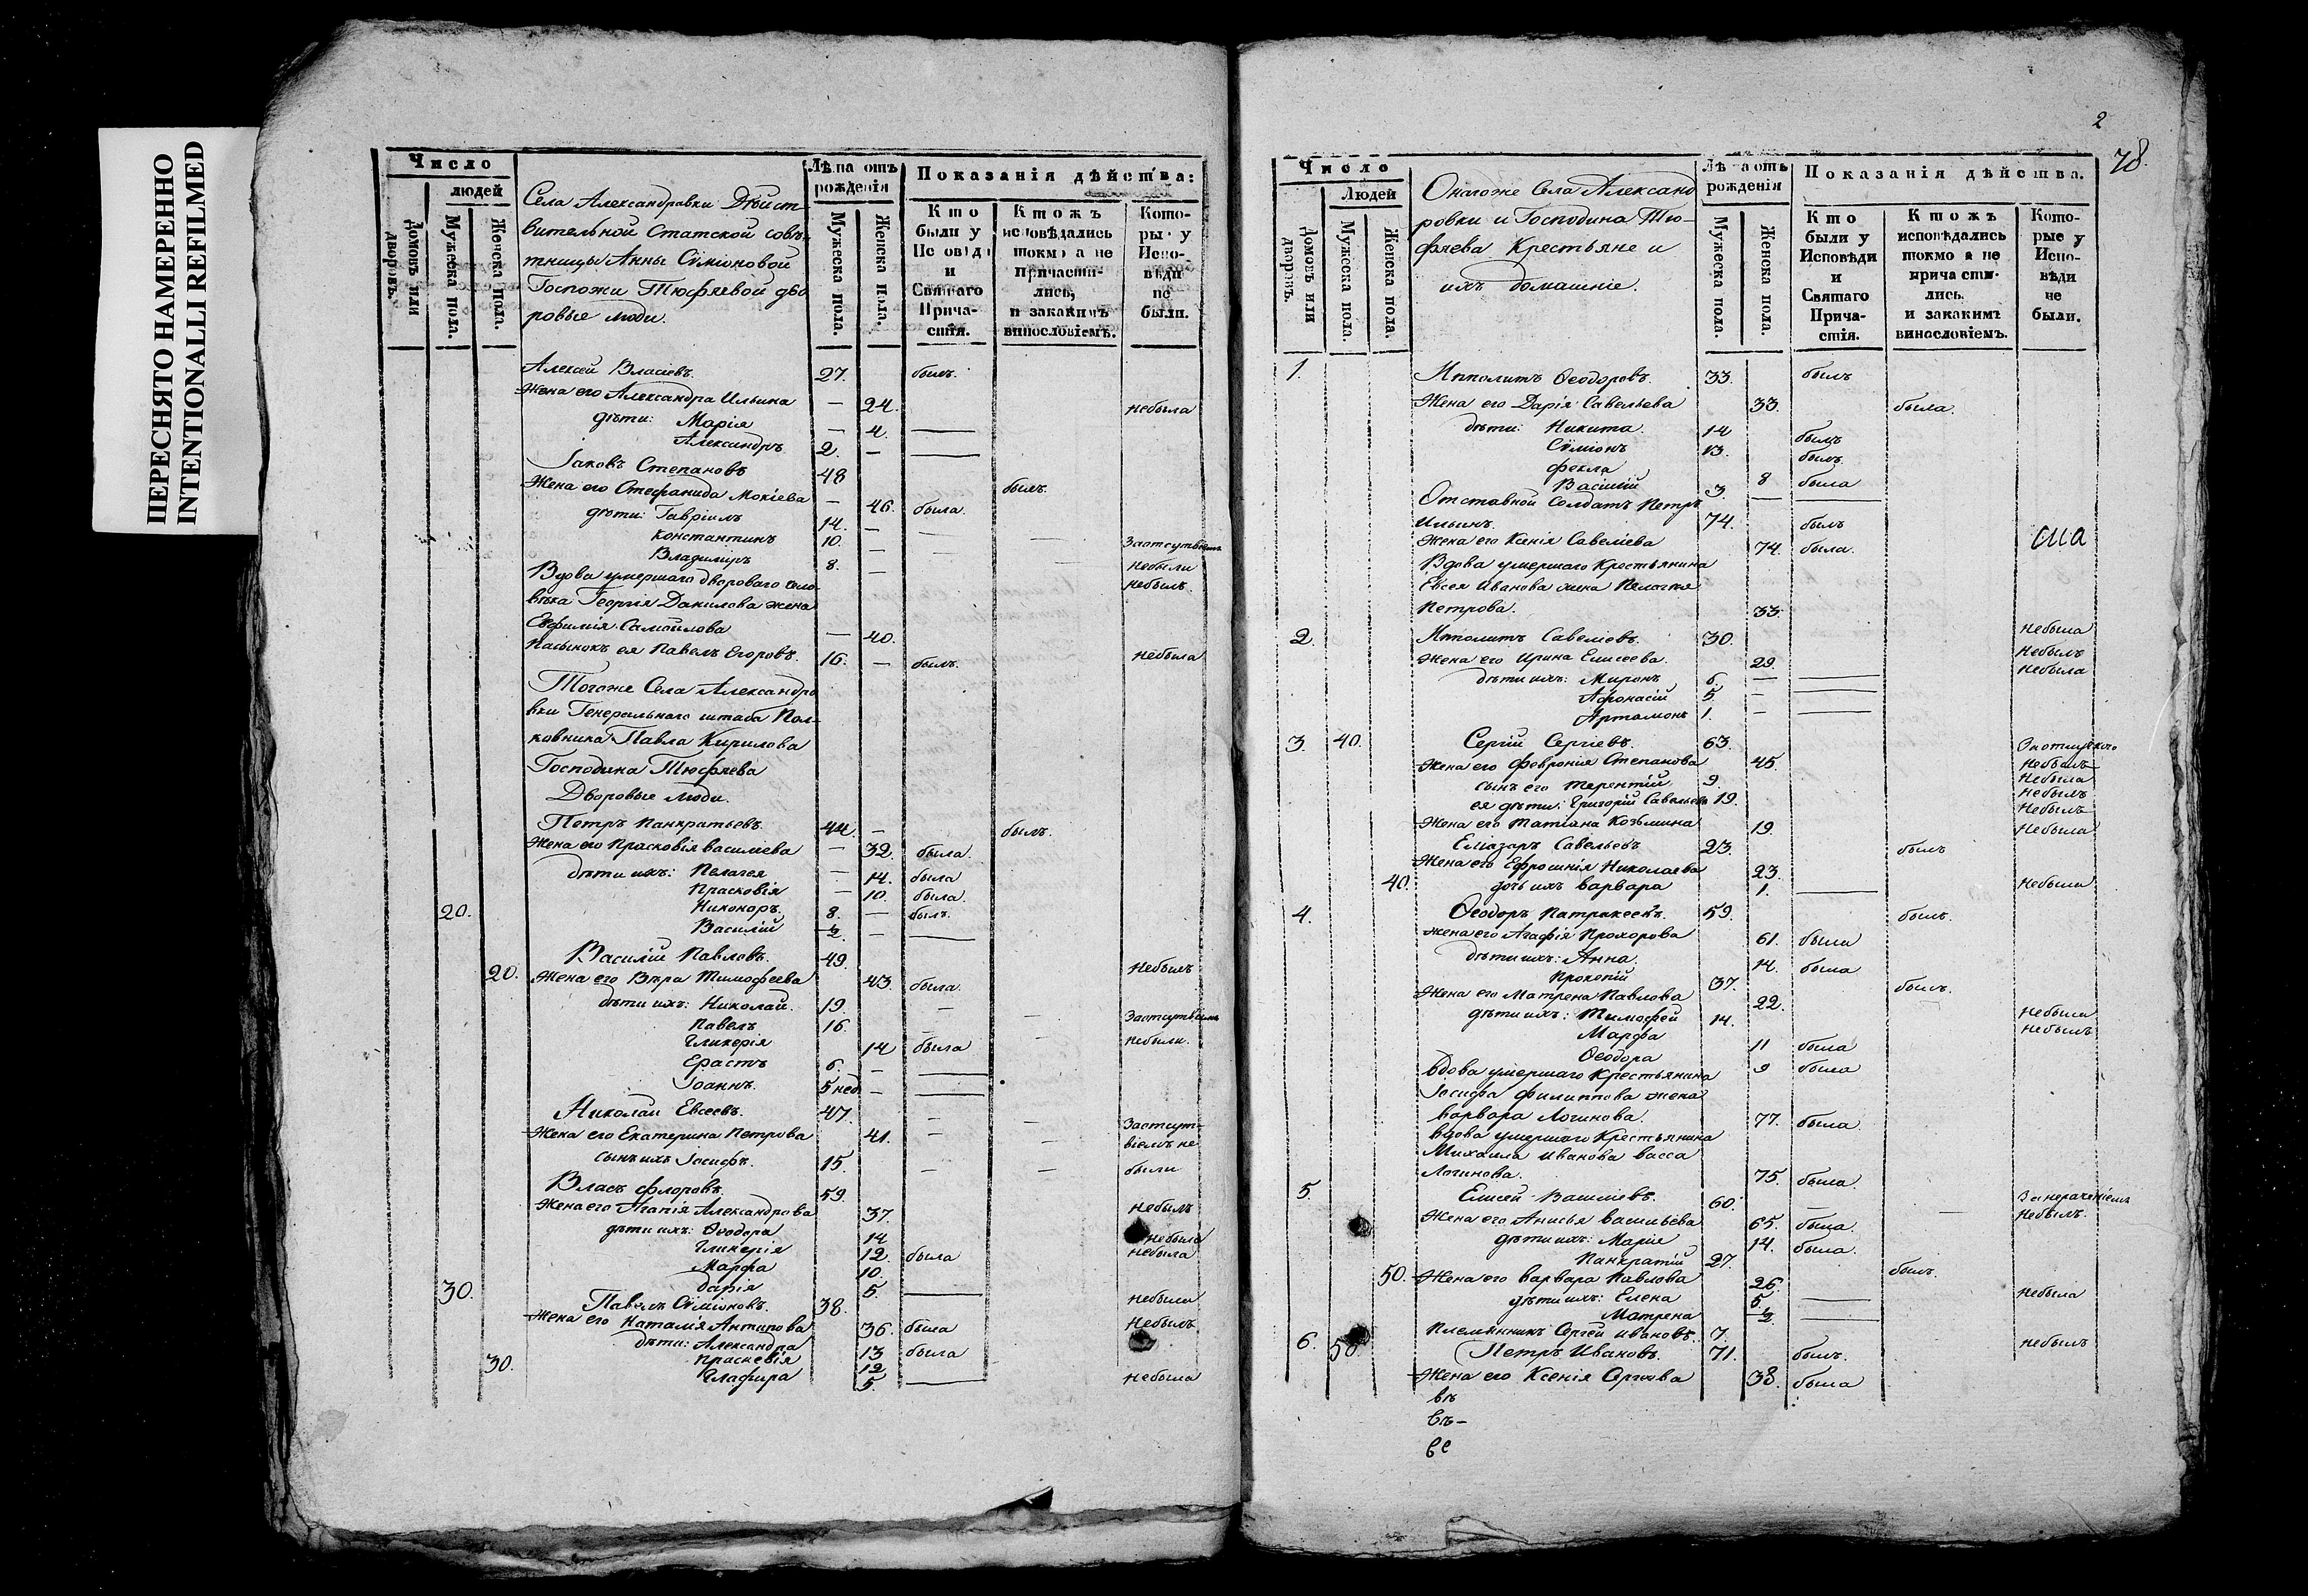 ПЕРЕСНЯТО НАМЕРЕННО
INTENTIONALLI REFILMED
Число
людей
Домовъ или дворовъ.
Мужеска пола.
Женска пола.
Села Александровки Дѣйст-
вительной Статской совѣ-
тницы Анны Сѵміоновой
Госпожи Тюфяевой дво
ровые люди.
Лѣта отъ рожденія
Мужеска пола.
Женска пола.
Показанія дѣйства:
Кто были у Исповѣди и Святаго Причастія.
Ктожъ исповѣдались токмо а не причастились, и закакимъ винословіемъ.
Которые у Исповѣди не были.
Алексей Власіевъ. 27. былъ.
Жена его Александра Ильина — 24. небыла
дѣти: Марія — 4. —
Александръ 2. — —
Іаковъ Степановъ 48 былъ.
Жена его Стефанида Мокіева — 46. была.
дѣти: Гавріилъ 14. — — —
Константинъ 10. — Заотсутвіемъ
Владиміръ 8. — — небыли
Вдова умершаго двороваго чело- небылъ.
вѣка Георгія Данилова жена
Евфимія Самойлова — 40.
Пасынокъ ея Павелъ Егоровъ. 16. — былъ. небыла
Тогоже Села Александро
вки Генеральнаго штаба Пол-
ковника Павла Кирилова
Господина Тюфяева
Дворовые люди.
Петръ Панкратьевъ. 44 — былъ.
Жена его Прасковія Василіева — 32. была.
дѣти ихъ: Пелагея — 14. была
Прасковія — 10. была.
20. Никоноръ. 8. — былъ.
Василій ½. — —
Василій Павловъ. 49.
20. Жена его Вѣра Тимофеева 43. была. Небылъ
дѣти ихъ: Николай. 19. — —
Павелъ 16. — — Заотсутвіемъ
Гликерія 14 была — небыли.
Ерастъ 6. — —
Іоаннъ. 5 нед — —
Николай Евсеевъ. 47. — — Заотсут-
Жена его Екатерина Петрова 41. — — віемъ не
сынъ ихъ Іосифъ. 15. — — были
Власъ Флоровъ. 59.
Жена его Агапія Александрова 37. небылъ
дѣти ихъ: Ѳеодора 14 небыла
Гликерія 12. была небыла
Марфа 10.
Дарія 5. —
30. Павелъ Сѵміоновъ. 38. небыла
Жена его Наталія Антипова 36. была Небылъ.
дѣти: Александра 13 была
30. Прасковія 12
Глафира 5. — небыла
2
78.
Число
Людей
Домовъ или дворовъ.
Мужеска пола
Женска пола.
Онагоже Села Александ
ровки и Господина Тю-
фяева Крестьяне и
ихъ домашніе.
Лѣта отъ рожденія
Мужеска пола.
Женска пола.
Показанія дѣйства.
Кто были у Исповѣди и Святаго Причастія.
Ктожъ исповѣдались токмо а не причастились. и закакимъ винословіемъ.
Которые у Исповѣди не были.
1. Ипполитъ Ѳеодоровъ. 33. былъ
Жена его Дарія Савельева 33. была.
дѣти: Никита. 14 былъ
Сѵміонъ 13. былъ.
Фекла 8 была
Василій 3. — —
Отставной Солдатъ Петръ
Ильинъ. 74. былъ
Жена его Ксенія Савеліева 74. была.
Вдова умершаго Крестьянина
Евсея Иванова жена Пелагея
Петрова. 33.
2. Ипполитъ Савеліевъ. 30. Небыла
Жена его Ирина Елисеева. 29. Небылъ
дѣти ихъ: Миронъ 6. — — Небыла
Афонасій 5. — —
Артамонъ 1. — —
3. 40. Сергій Сергіевъ. 63.
Жена его Февронія Степанова 45. Небылъ
сынъ его Терентій. 9. Небыла
ея дѣти: Григорій Савельевъ 19. Небылъ
Небылъ
Жена его Татіана Козьмина 19. Небыла
Елиазаръ Савельевъ 23. былъ
Жена его Ефросинія Николаева 23.
40. дочь ихъ Варвара 1. — Небыла
4. Ѳеодоръ Патрикеевъ. 59. былъ.
Жена его Агафія Прохорова 61. была
дѣти ихъ: Анна. 14. была
Прокопій 37. былъ.
Жена его Матрена Павлова 22.
дѣти ихъ: Тимофей 14. Небыла
Марфа 11 была Небылъ
Ѳеодора 9 была
Вдова умершаго Крестьянина
Іосифа Филиппова жена
Варвара Логинова. 77. была.
Вдова умершаго Крестьянина
Михаила Иванова Васса
Логинова. 75. была.
5. Елисей Василіевъ. 60. — — Занераченіемъ
Небылъ.
Жена его Анисья Васильева 65. была.
дѣти ихъ: Марія 14. была.
Панкратій 27. былъ.
50. Жена его Варвара Павлова 26.
дѣти ихъ: Елена 5. — Небыла
Матрена ½. —
Племянникъ Сергей Ивановъ. 7.
6. 50. Петръ Ивановъ. 71. былъ. Небылъ
Жена его Ксенія Сергѣева 38. была